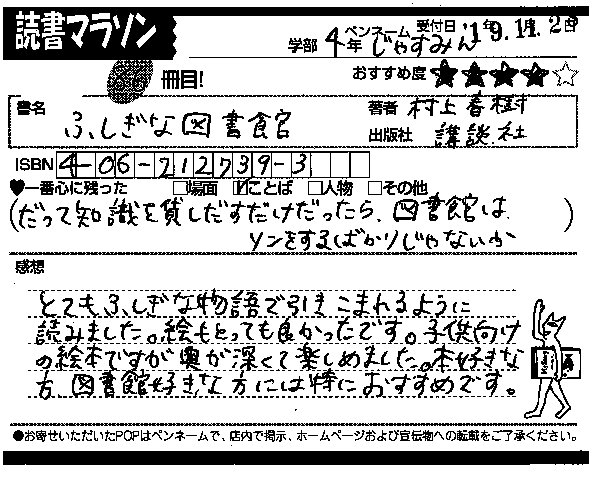 読書マラソン
学部 4年 ペンネーム じゃすみん 受付日 '19.11.2
冊目! おすすめ度 ★★★★☆
書名 ふしぎな図書館
著者 村上春樹
出版社 講談社
ISBN 4-06-212739-3
♥一番心に残った □場面 ☑ことば □人物 □その他
(だって知識を貸しだすだけだったら、図書館は
ソンをするばかりじゃないか)
感想
とてもふしぎな物語で引きこまれるように
読みました。絵もとっても良かったです。子供向け
の絵本ですが奥が深くて楽しめました。本好きな
方 図書館好きな方には特におすすめです。
●お寄せいただいたPOPはペンネームで、店内で掲示、ホームページおよび宣伝物への転載をご了承ください。